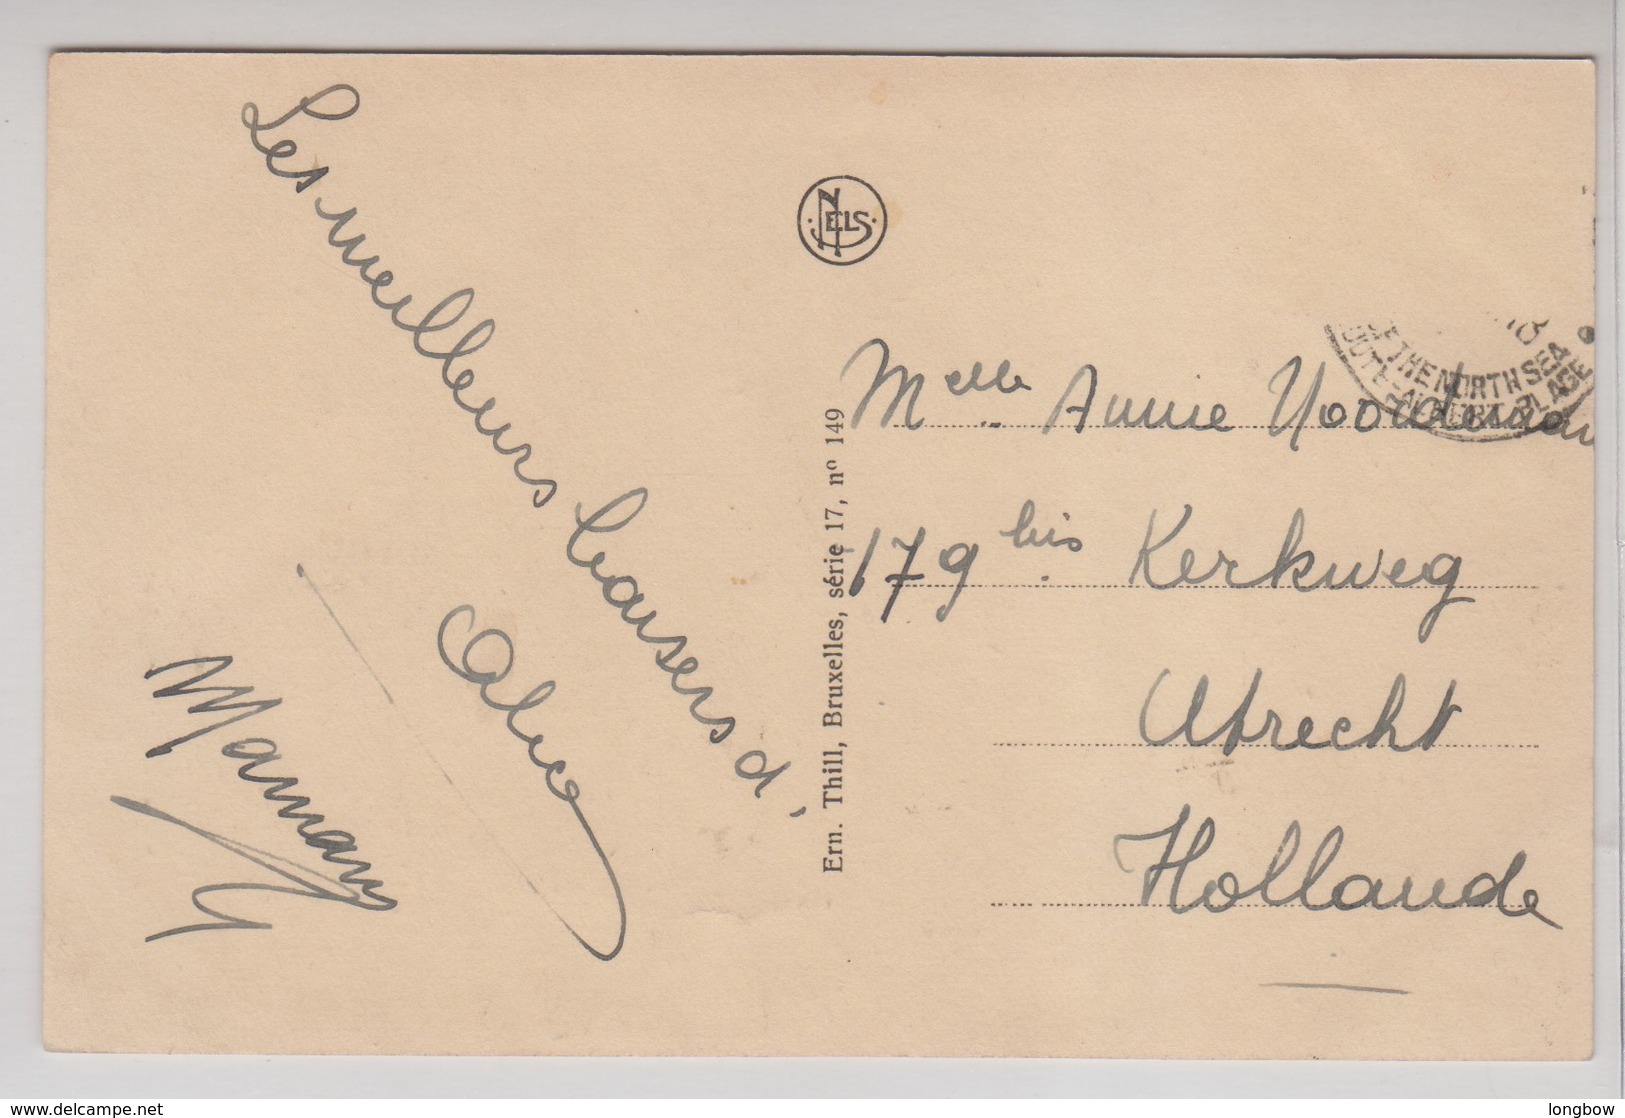 Les meilleurs baisers d'
Alice
Maman
NELS
Ern. Thill, Bruxelles, série 17, nº 149
Melle Annie Noordenaar
179 bis Kerkweg
Utrecht
Hollande
THE NORTH SEA
ALBERT-PLAGE
www.delcampe.net
longbow